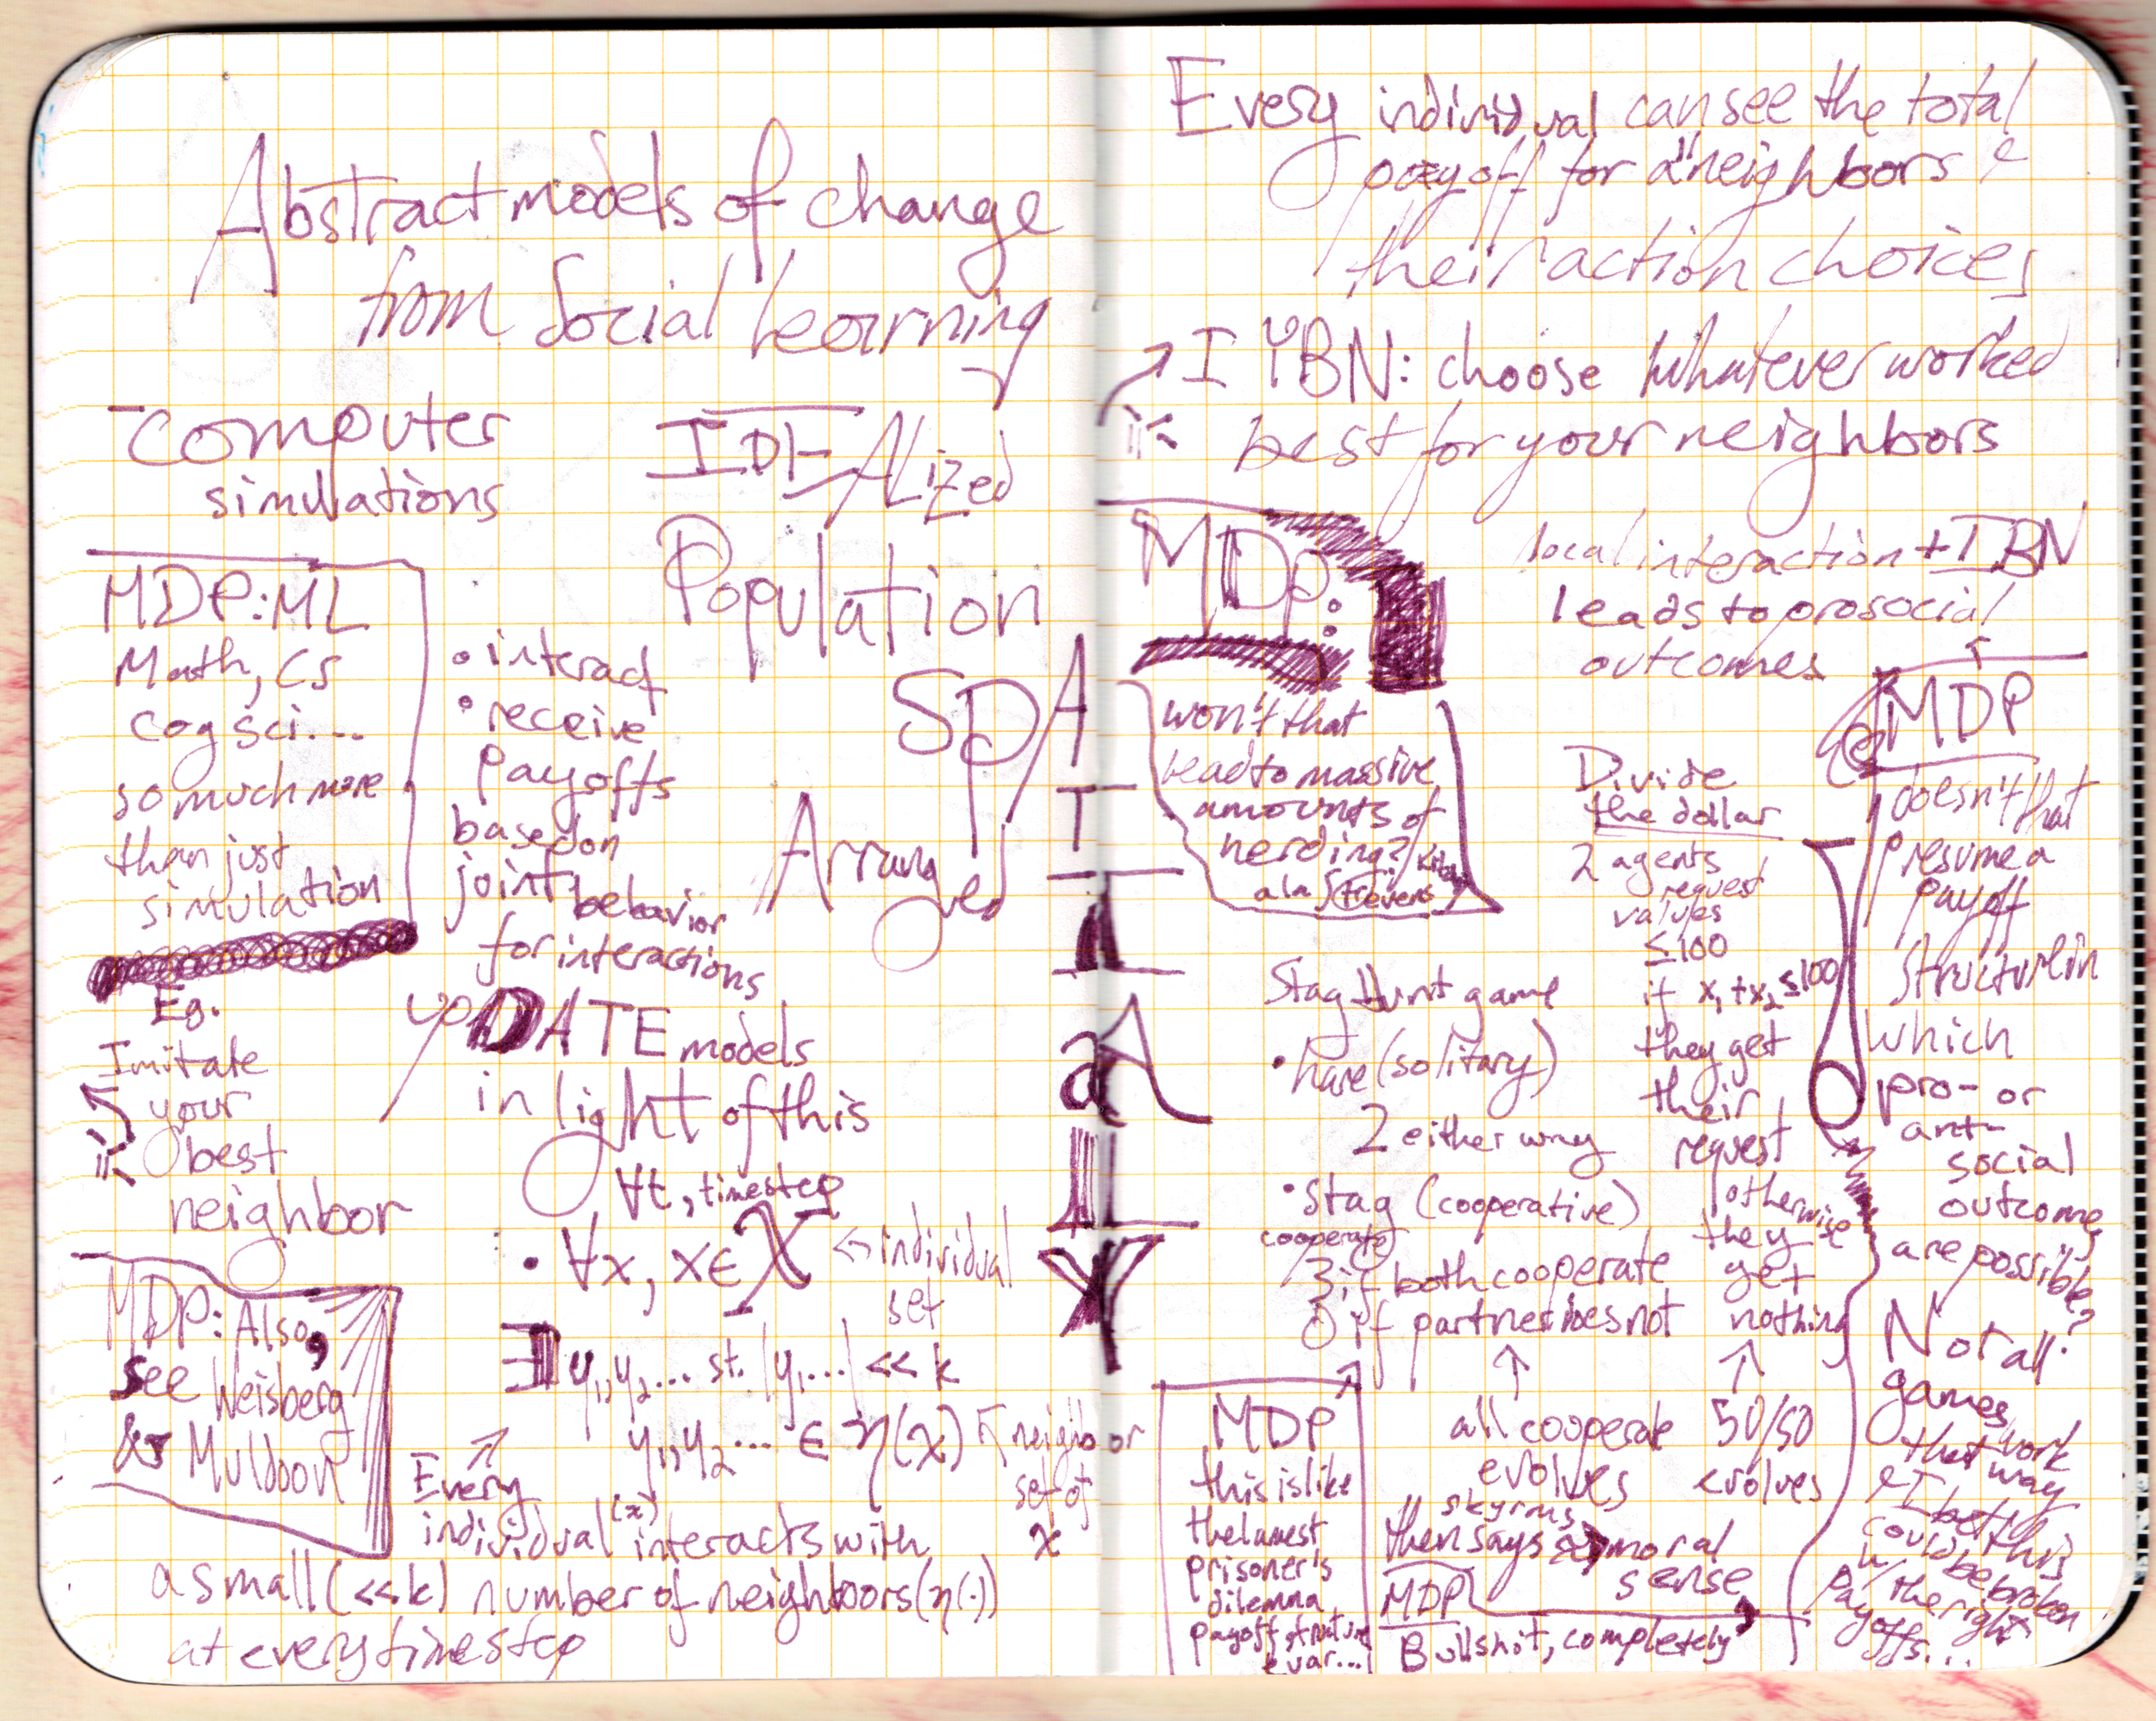 Abstract models of change
from Social Learning
- computer
simulations
IDEALized
Population
SPATIALLY
Arranged
MDP: ML
Math, CS
cog sci...
so much more
than just
simulation
• interact
• receive
payoffs
based on
joint behavior
for interactions
Eg.
Imitate
your
best
neighbor
upDATE models
in light of this
∀t, timestep
• ∀x, x∈X ← individual
set
∃ y₁, y₂... st. |y₁...| << k
y₁, y₂... ∈ η(x) ← neighbor
set of
x
MDP: Also,
see Weisberg
& Muldoon
Every
individual (x) interacts with
a small (<<k) number of neighbors (η(·))
at every timestep
Every individual can see the total
payoff for all neighbors &
their action choices
→ IYBN: choose whatever worked
best for your neighbors
MDP:
won't that
lead to massive
amounts of
herding?
a la Strevens
local interaction + IBN
leads to prosocial
outcomes
MDP
doesn't that
presume a
payoff
structure in
which
pro- or
anti-
social
outcomes
are possible?
Not all
games
that work
that way
I bet this
could be broken
w/ the right
payoffs...
Divide
the dollar
2 agents
request
values
≤100
if x₁+x₂≤100
they get
their
request
otherwise
they
get
nothing
↑
50/50
evolves
Stag Hunt game
• hare (solitary)
2 either way
• Stag (cooperative)
cooperate
3 if both cooperate
0 if partner does not
↑
all cooperate
evolves
Skyrms
then says → moral
sense
MDP
Bullshit, completely
MDP
this is like
the lamest
prisoner's
dilemma
payoff structure
evar...